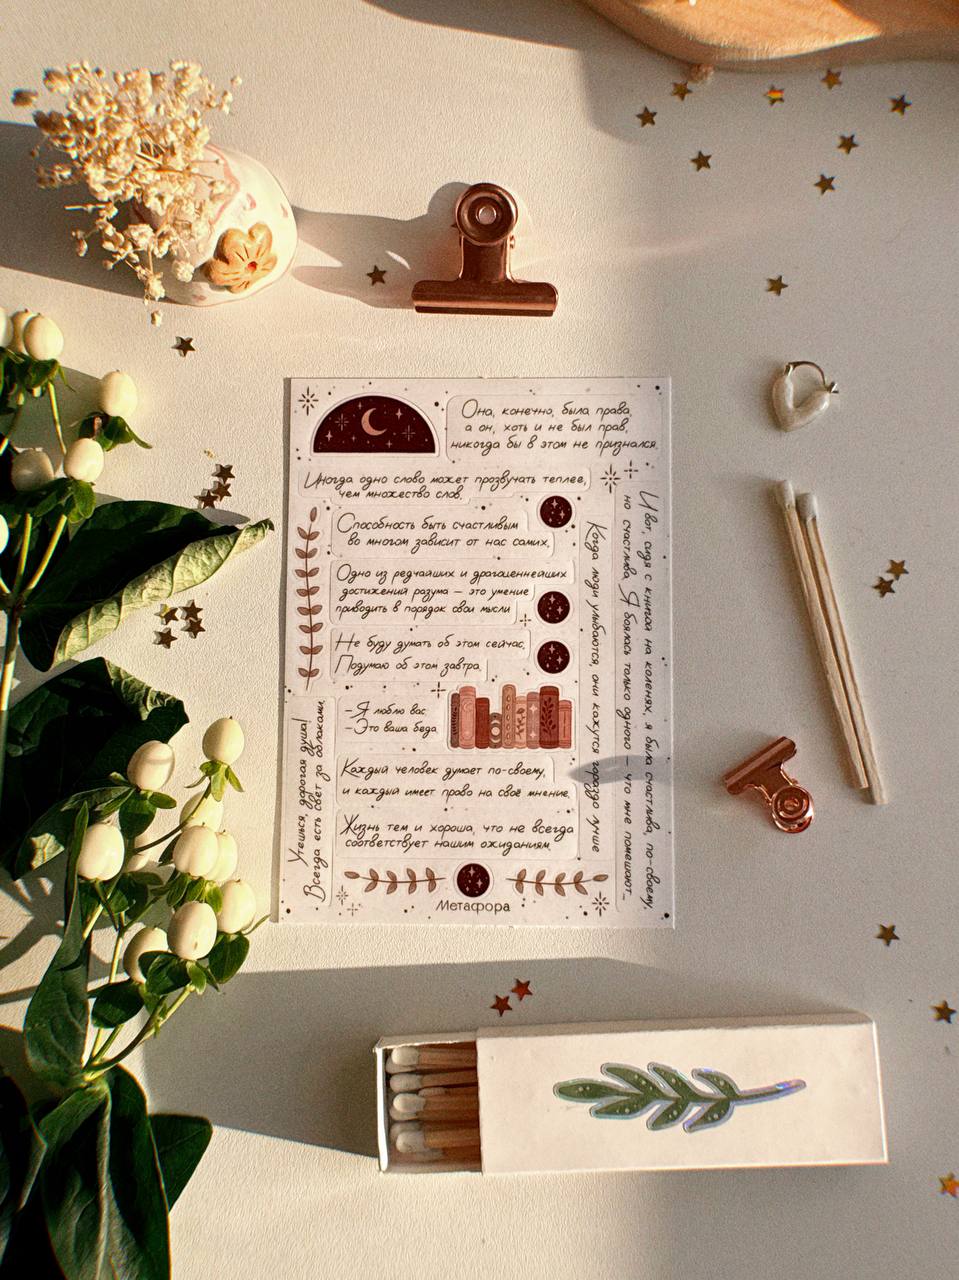 Она, конечно, была права,
а он, хоть и не был прав,
никогда бы в этом не признался.
Иногда одно слово может прозвучать теплее,
чем множество слов.
Способность быть счастливым
во многом зависит от нас самих.
Одно из редчайших и драгоценнейших
достижений разума — это умение
приводить в порядок свои мысли
Не буду думать об этом сейчас,
Подумаю об этом завтра.
-Я люблю вас.
-Это ваша беда.
Каждый человек думает по-своему,
и каждый имеет право на своё мнение.
Жизнь тем и хороша, что не всегда
соответствует нашим ожиданиям.
Утешься, дорогая душа!
Всегда есть свет за облаками.
Когда люди улыбаются, они кажутся гораздо лучше
И вот, сидя с книгой на коленях, я была счастлива, по-своему,
но счастлива. Я боялась только одного — что мне помешают...
Метафора